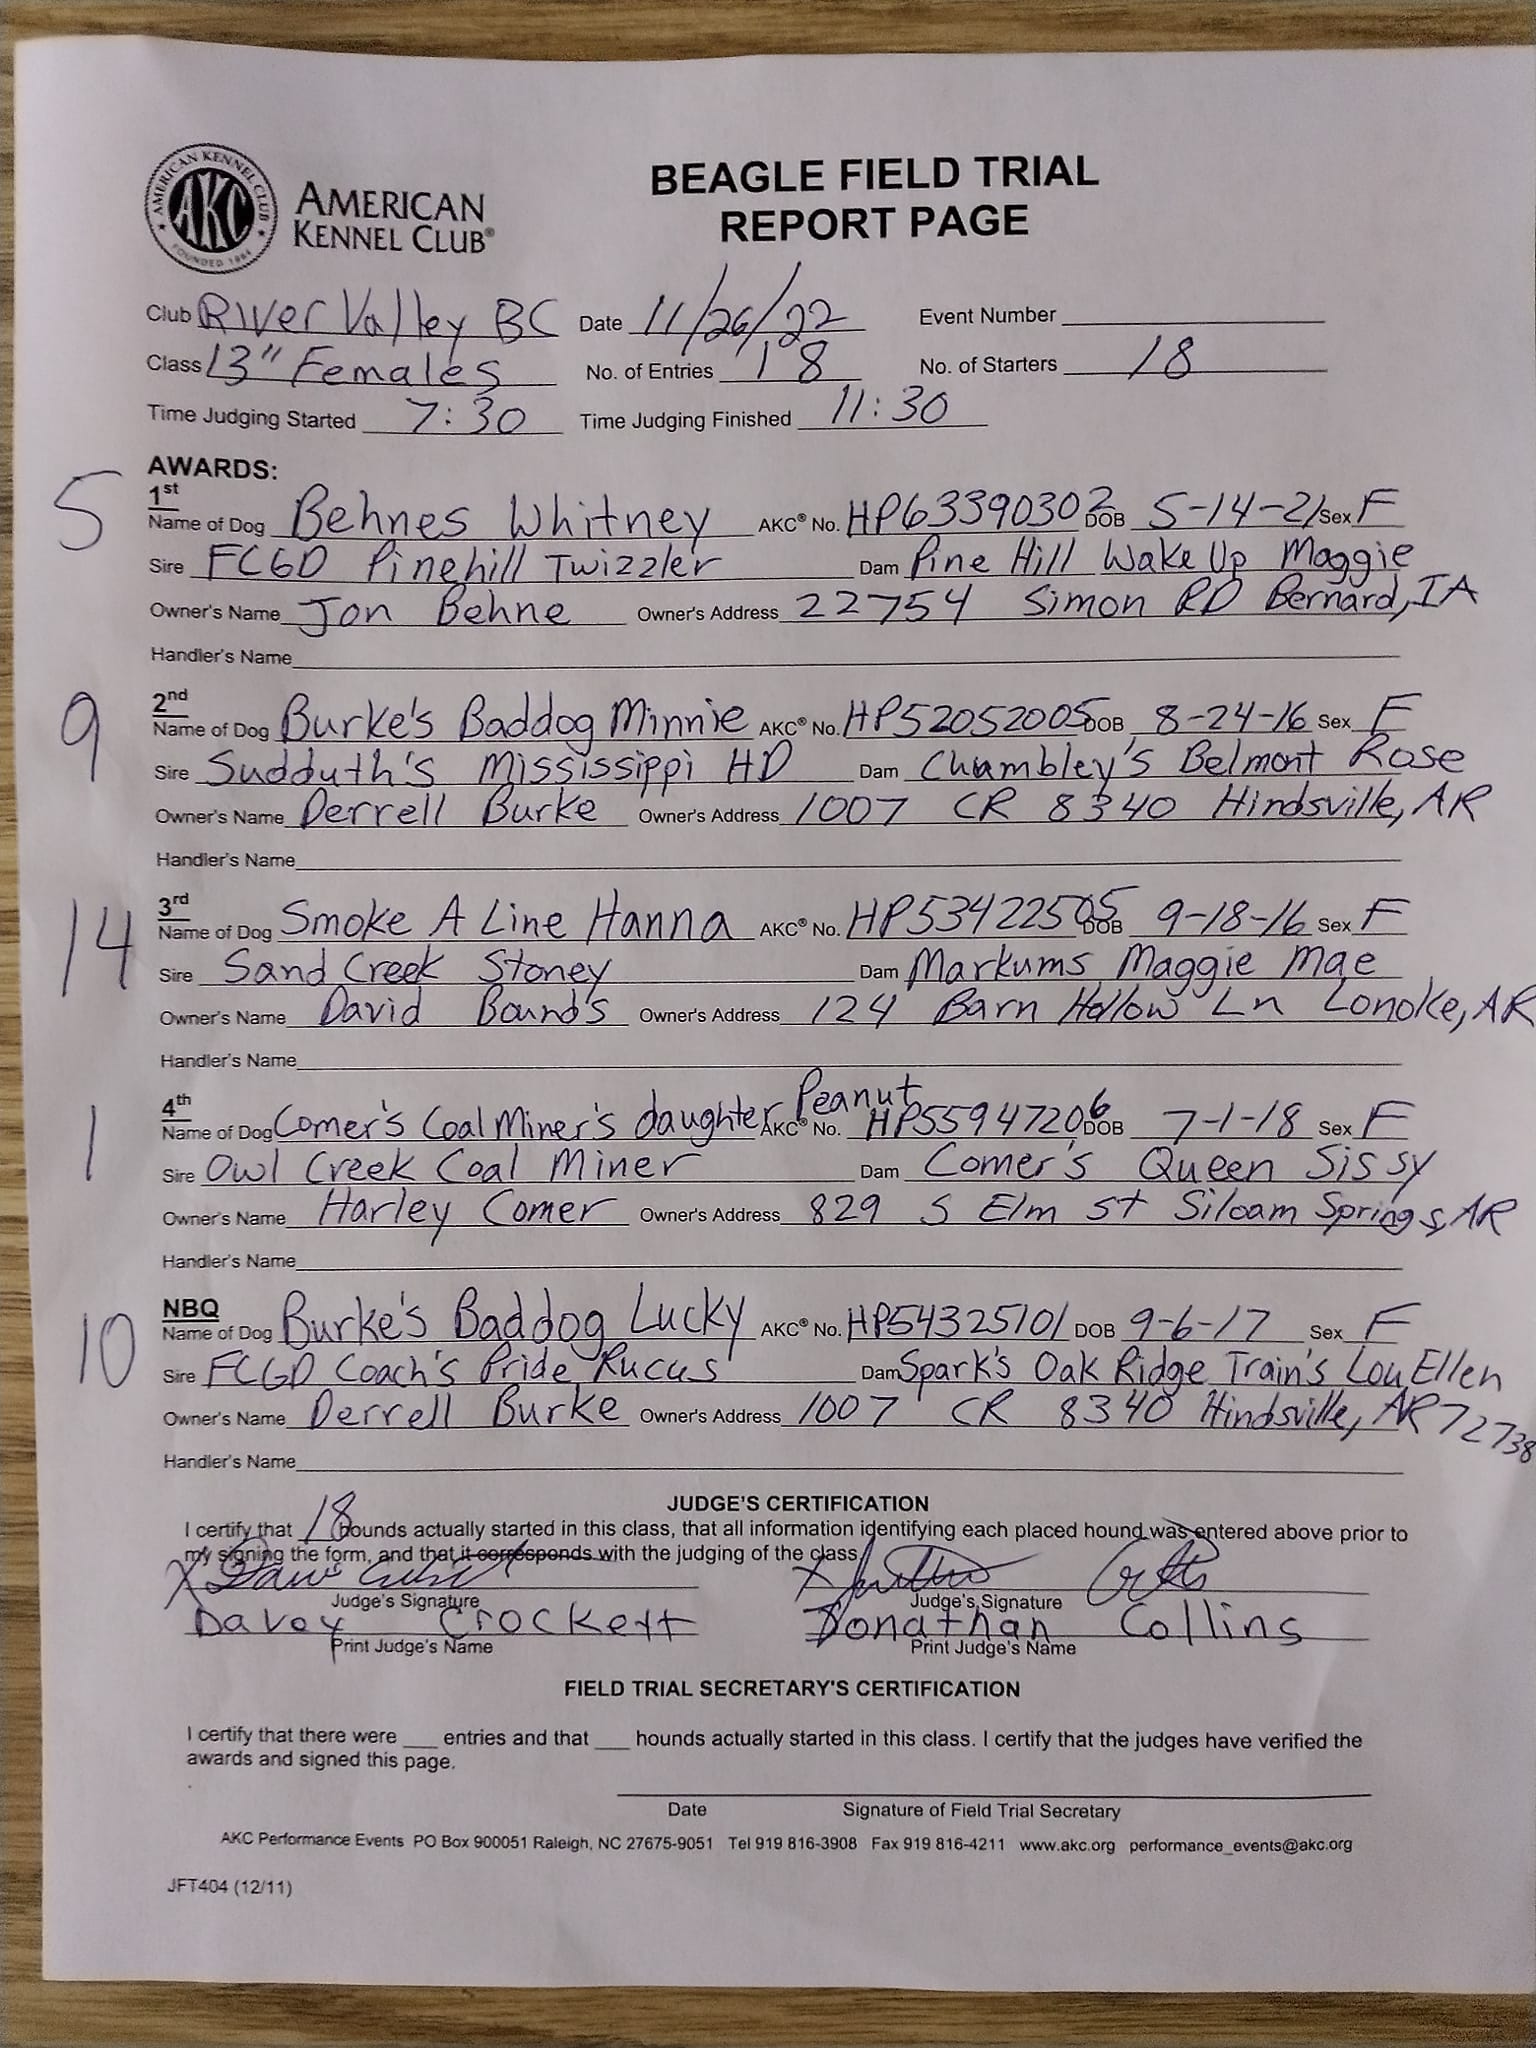 AMERICAN KENNEL CLUB
AKC
FOUNDED 1884
AMERICAN
KENNEL CLUB®
BEAGLE FIELD TRIAL
REPORT PAGE
Club River Valley BC Date 11/26/22 Event Number
Class 13" Females No. of Entries 18 No. of Starters 18
Time Judging Started 7:30 Time Judging Finished 11:30
AWARDS:
5 1st
Name of Dog Behnes Whitney AKC® No. HP63390302 DOB 5-14-21 Sex F
Sire FCGD Pinehill Twizzler Dam Pine Hill Wake Up Maggie
Owner's Name Jon Behne Owner's Address 22754 Simon RD Bernard, IA
Handler's Name
9 2nd
Name of Dog Burke's Baddog Minnie AKC® No. HP52052005 DOB 8-24-16 Sex F
Sire Sudduth's Mississippi HD Dam Chambley's Belmont Rose
Owner's Name Derrell Burke Owner's Address 1007 CR 8340 Hindsville, AR
Handler's Name
14 3rd
Name of Dog Smoke A Line Hanna AKC® No. HP53422505 DOB 9-18-16 Sex F
Sire Sand Creek Stoney Dam Markums Maggie Mae
Owner's Name David Bounds Owner's Address 124 Barn Hollow Ln Lonoke, AR
Handler's Name
1 4th
Name of Dog Comer's Coal Miner's daughter Peanut AKC® No. HP55947206 DOB 7-1-18 Sex F
Sire Owl Creek Coal Miner Dam Comer's Queen Sissy
Owner's Name Harley Comer Owner's Address 829 S Elm st Siloam Springs, AR
Handler's Name
10 NBQ
Name of Dog Burke's Baddog Lucky AKC® No. HP54325101 DOB 9-6-17 Sex F
Sire FCGD Coach's Pride Rucus Dam Spark's Oak Ridge Train's Lou Ellen
Owner's Name Derrell Burke Owner's Address 1007 CR 8340 Hindsville, AR 72738
Handler's Name
JUDGE'S CERTIFICATION
I certify that 18 hounds actually started in this class, that all information identifying each placed hound was entered above prior to
my signing the form, and that it corresponds with the judging of the class.
X X
Judge's Signature Judge's Signature
Davey Crockett Jonathan Collins
Print Judge's Name Print Judge's Name
FIELD TRIAL SECRETARY'S CERTIFICATION
I certify that there were ___ entries and that ___ hounds actually started in this class. I certify that the judges have verified the
awards and signed this page.
Date Signature of Field Trial Secretary
AKC Performance Events PO Box 900051 Raleigh, NC 27675-9051 Tel 919 816-3908 Fax 919 816-4211 www.akc.org performance_events@akc.org
JFT404 (12/11)